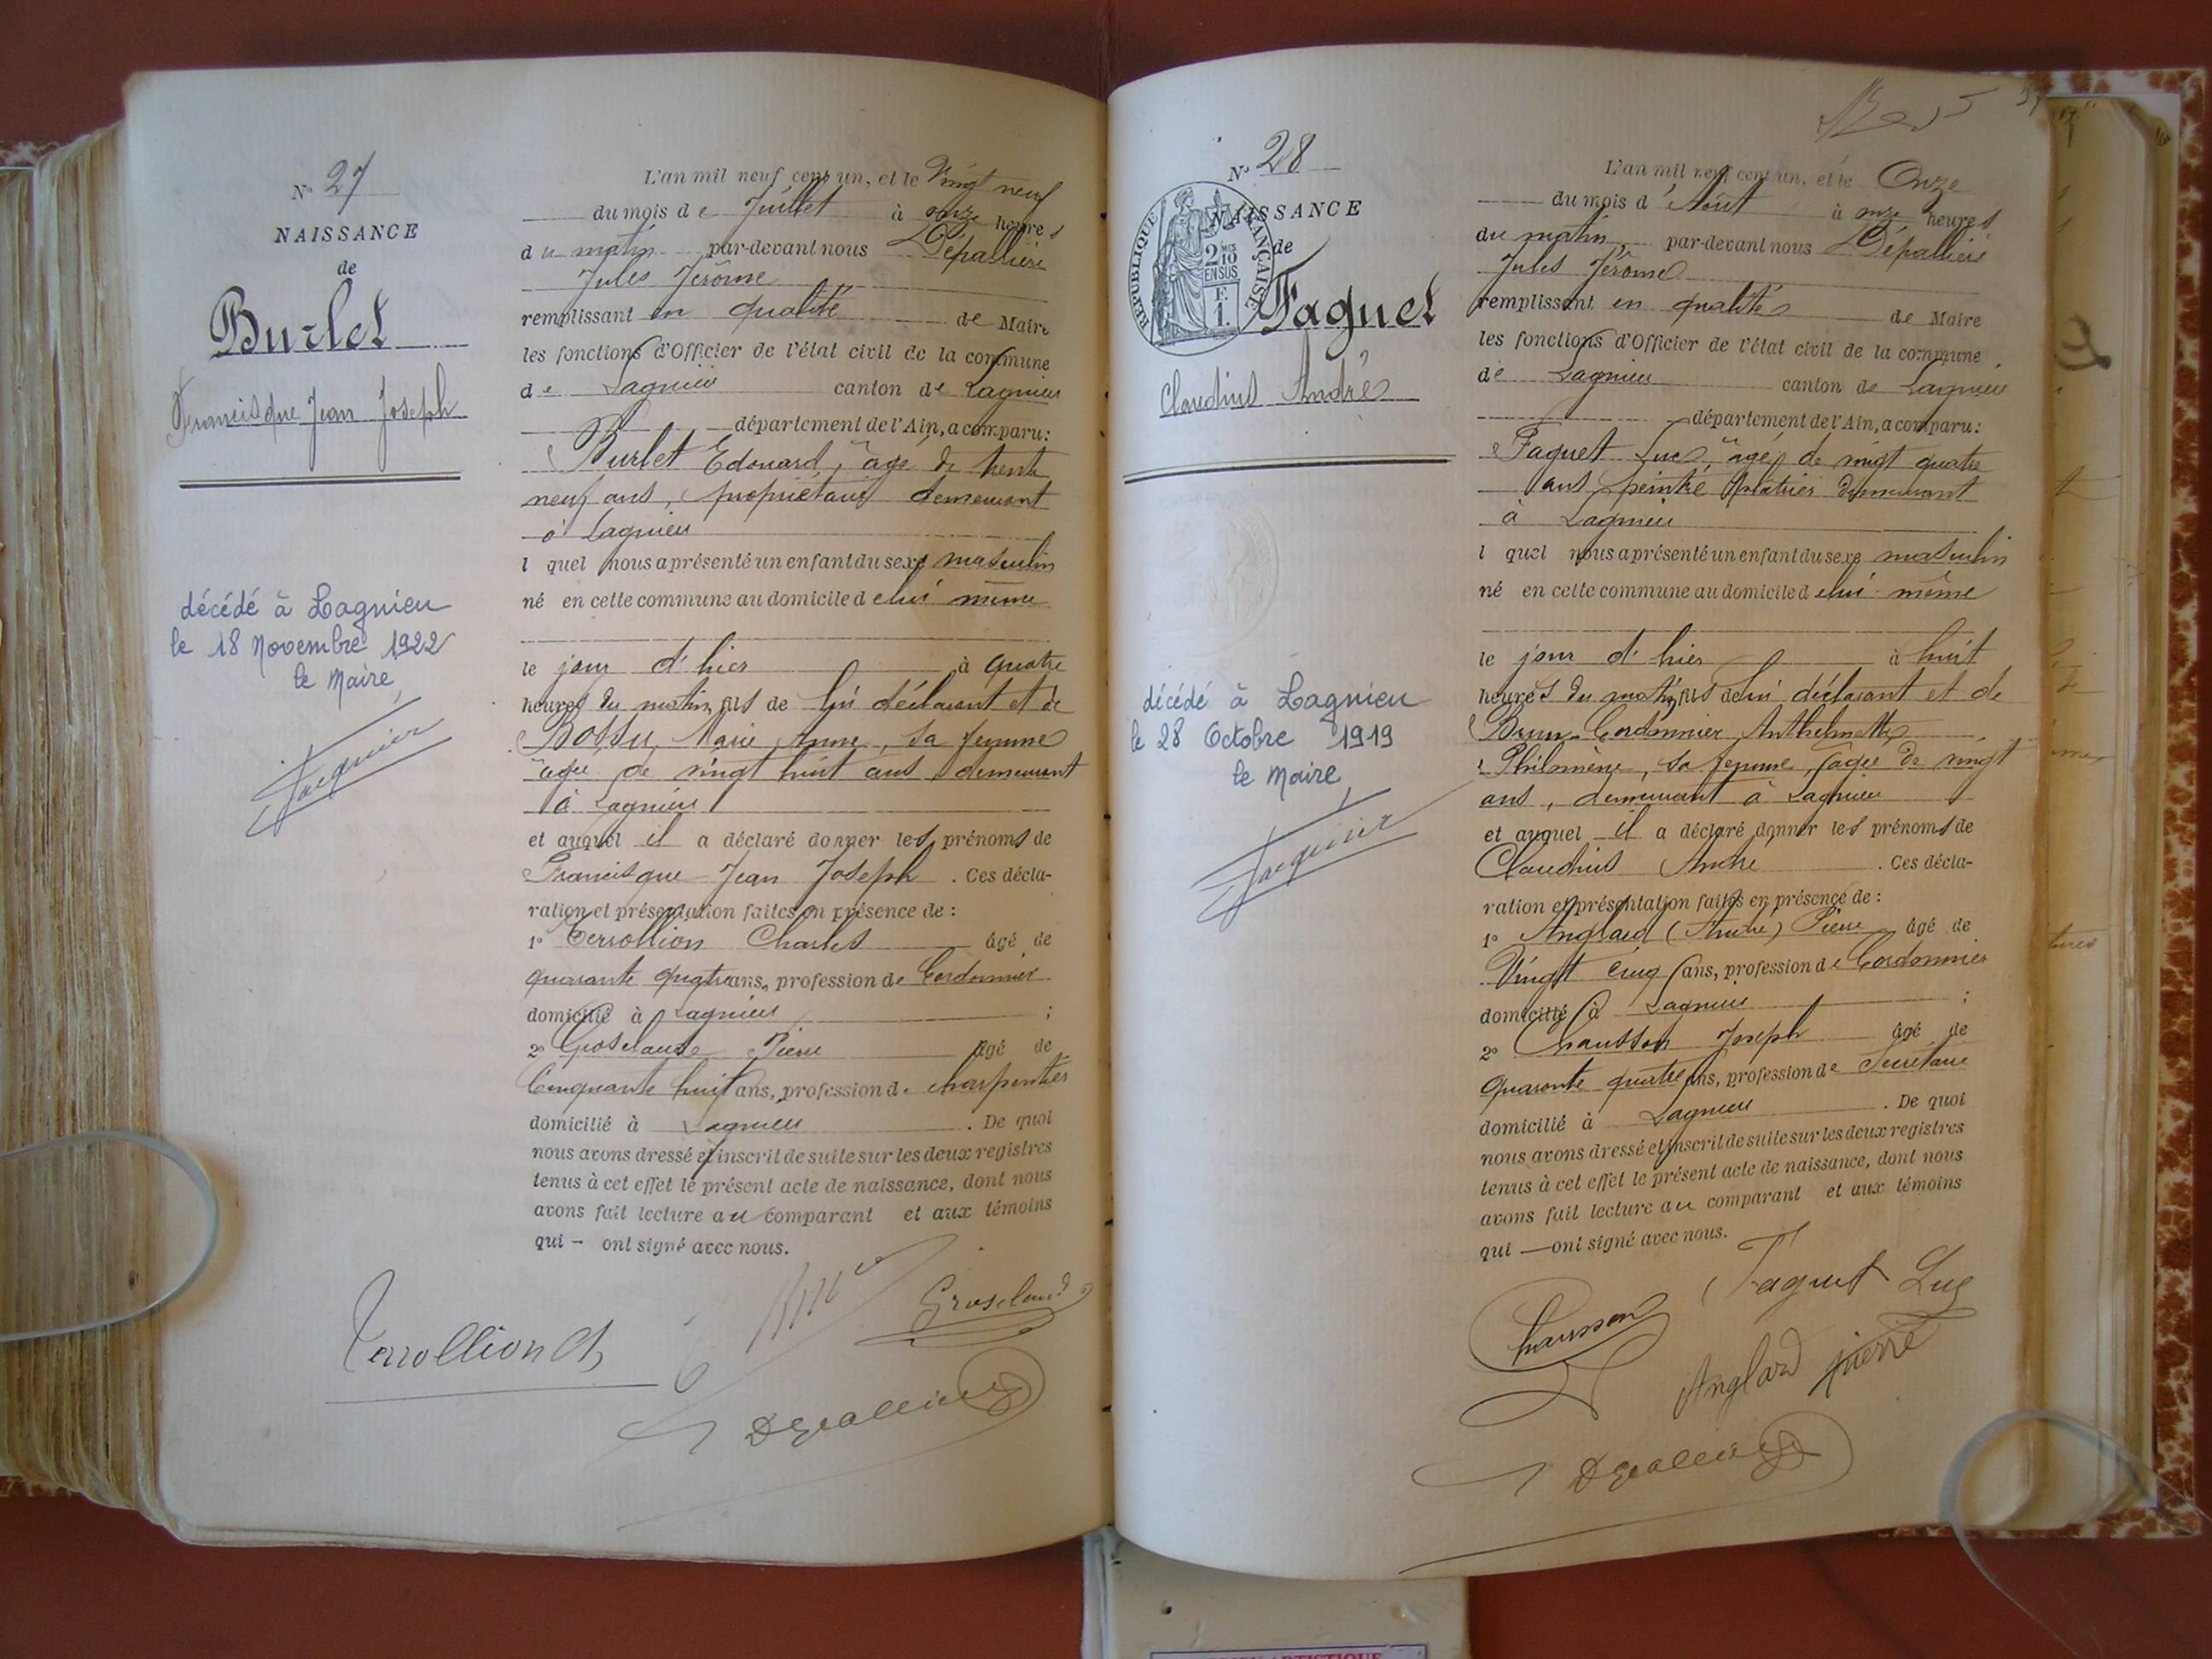 N° 27
NAISSANCE
de
Burlet
Francisque Jean Joseph
décédé à Lagnieu
le 18 Novembre 1922
le Maire,
Jacquier
L'an mil neuf cent un, et le Vingt neuf
du mois de Juillet à onze heures
du matin par-devant nous Dépallière
Jules Jérôme
remplissant en qualité de Maire
les fonctions d'Officier de l'état civil de la commune
de Lagnieu canton de Lagnieu
département de l'Ain, a comparu:
Burlet Edouard, âgé de trente
neuf ans, propriétaire demeurant
à Lagnieu
l quel nous a présenté un enfant du sexe masculin
né en cette commune au domicile de lui même
le jour d'hier à quatre
heures du matin, fils de lui déclarant et de
Bossu Marie Anne, sa femme
âgée de vingt huit ans demeurant
à Lagnieu
et auquel il a déclaré donner les prénoms de
Francisque Jean Joseph. Ces décla-
ration et présentation faites en présence de:
1° Terrollion Charles âgé de
quarante quatre ans, profession de Cordonnier
domicilié à Lagnieu ;
2° Grosclaude Pierre âgé de
Cinquante huit ans, profession de charpentier
domicilié à Lagnieu. De quoi
nous avons dressé et inscrit de suite sur les deux registres
tenus à cet effet le présent acte de naissance, dont nous
avons fait lecture au comparant et aux témoins
qui - ont signé avec nous.
Grosclaude
Terrollion Ch
Depallière
N° 28
NAISSANCE
de
RÉPUBLIQUE FRANÇAISE
2/10
EN SUS
F.
1.
Faguet
Claudius André
décédé à Lagnieu
le 28 Octobre 1919
le Maire,
Jacquier
L'an mil neuf cent un, et le Onze
du mois d'Août à onze heures
du matin, par-devant nous Dépallière
Jules Jérôme
remplissant en qualité de Maire
les fonctions d'Officier de l'état civil de la commune
de Lagnieu canton de Lagnieu
département de l'Ain, a comparu:
Faguet Luc, âgé de vingt quatre
ans, peintre plâtrier demeurant
à Lagnieu
l quel nous a présenté un enfant du sexe masculin
né en cette commune au domicile de lui même
le jour d'hier à huit
heures du matin, fils de lui déclarant et de
Brun-Cordonnier Anthelmette
Philomène, sa femme, âgée de vingt
ans, demeurant à Lagnieu
et auquel il a déclaré donner les prénoms de
Claudius André. Ces décla-
ration et présentation faites en présence de:
1° Anglard (André) Pierre âgé de
Vingt cinq ans, profession de Cordonnier
domicilié à Lagnieu ;
2° Chausson Joseph âgé de
quarante quatre ans, profession de Secrétaire
domicilié à Lagnieu. De quoi
nous avons dressé et inscrit de suite sur les deux registres
tenus à cet effet le présent acte de naissance, dont nous
avons fait lecture au comparant et aux témoins
qui — ont signé avec nous.
Faguet Luc
Chausson
Anglard pierre
Depallière